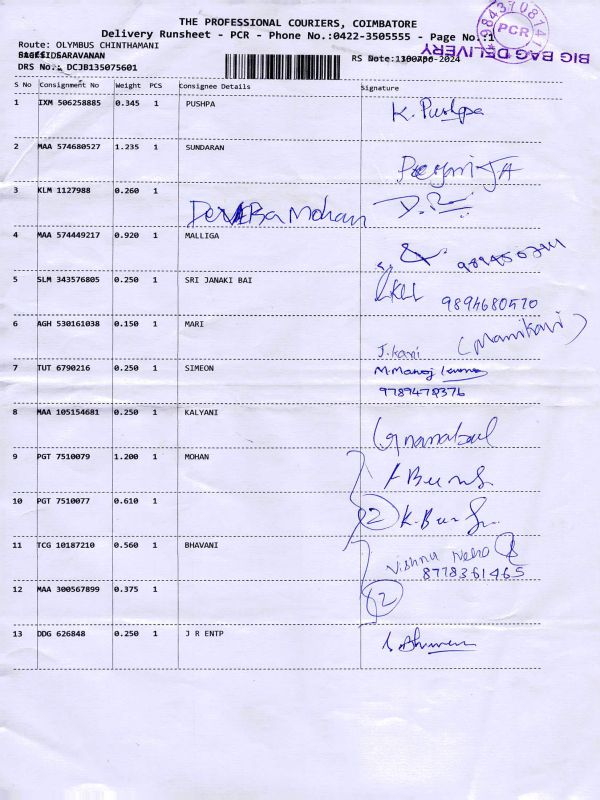 THE PROFESSIONAL COURIERS, COIMBATORE
Delivery Runsheet - PCR - Phone No.:0422-3505555 - Page No.:1
Route: OLYMBUS CHINTHAMANI
SARAVANAN
DRS No.: DCJB135075601
BIG BAG DELIVERY
PCR
S No Consignment No Weight PCS Consignee Details Signature
1 IXM 506258885 0.345 1 PUSHPA K. Pushpa
2 MAA 574680527 1.235 1 SUNDARAN
3 KLM 1127988 0.260 1 Mohan
4 MAA 574449217 0.920 1 MALLIGA
5 SLM 343576805 0.250 1 SRI JANAKI BAI 9894680570
6 AGH 530161038 0.150 1 MARI J. Kani (Manikavi)
7 TUT 6790216 0.250 1 SIMEON M. Manoj Kumar
9789478376
8 MAA 105154681 0.250 1 KALYANI
9 PGT 7510079 1.200 1 MOHAN
10 PGT 7510077 0.610 1 2
11 TCG 10187210 0.560 1 BHAVANI Vishnu
8778361465
12 MAA 300567899 0.375 1 2
13 DDG 626848 0.250 1 J R ENTP